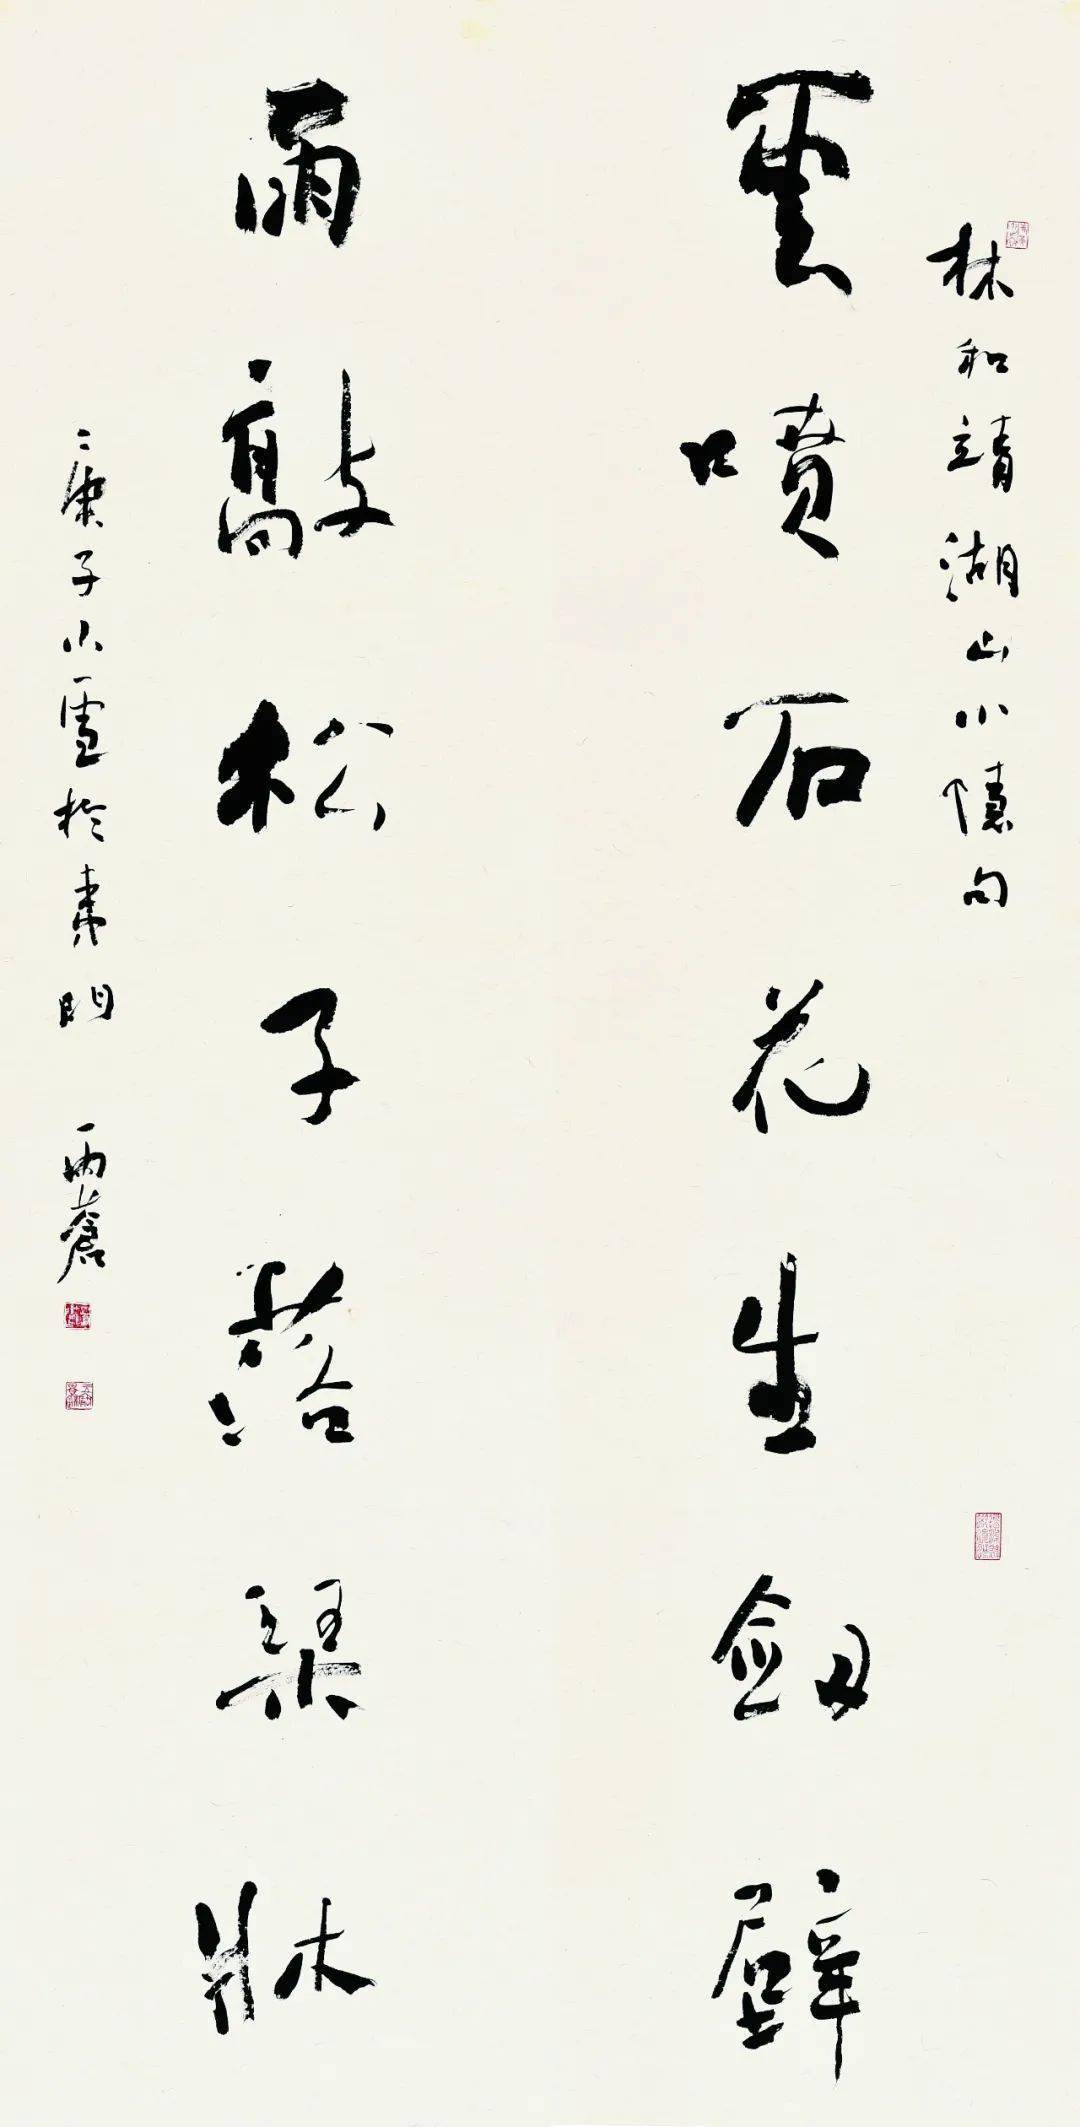 林和靖湖山小隱句
雲噴石花生劒壁
雨敲松子落琴牀
庚子小雪於 門 蒼